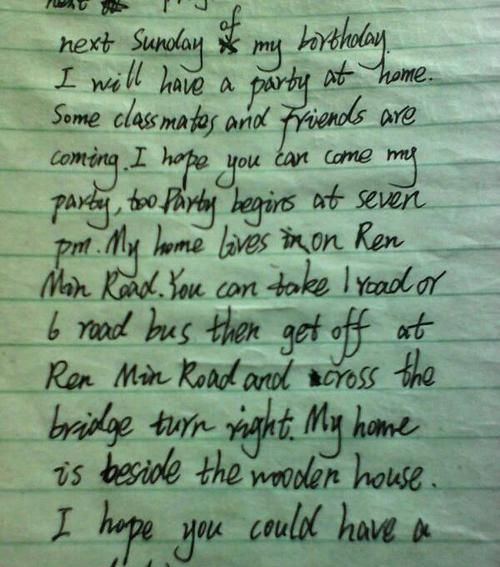 next Sunday of my birthday.
I will have a party at home.
Some classmates and friends are
coming. I hope you can come my
party, too Party begins at seven
pm. My home lives in on Ren
Min Road. You can take 1 road or
6 road bus then get off at
Ren Min Road and cross the
bridge turn right. My home
is beside the wooden house.
I hope you could have a